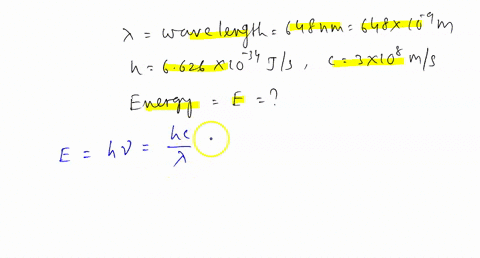 λ = wavelength = 648nm = 648×10⁻⁹ m
h = 6.626 ×10⁻³⁴ J/s , c = 3×10⁸ m/s
Energy = E = ?
E = hν = hc/λ